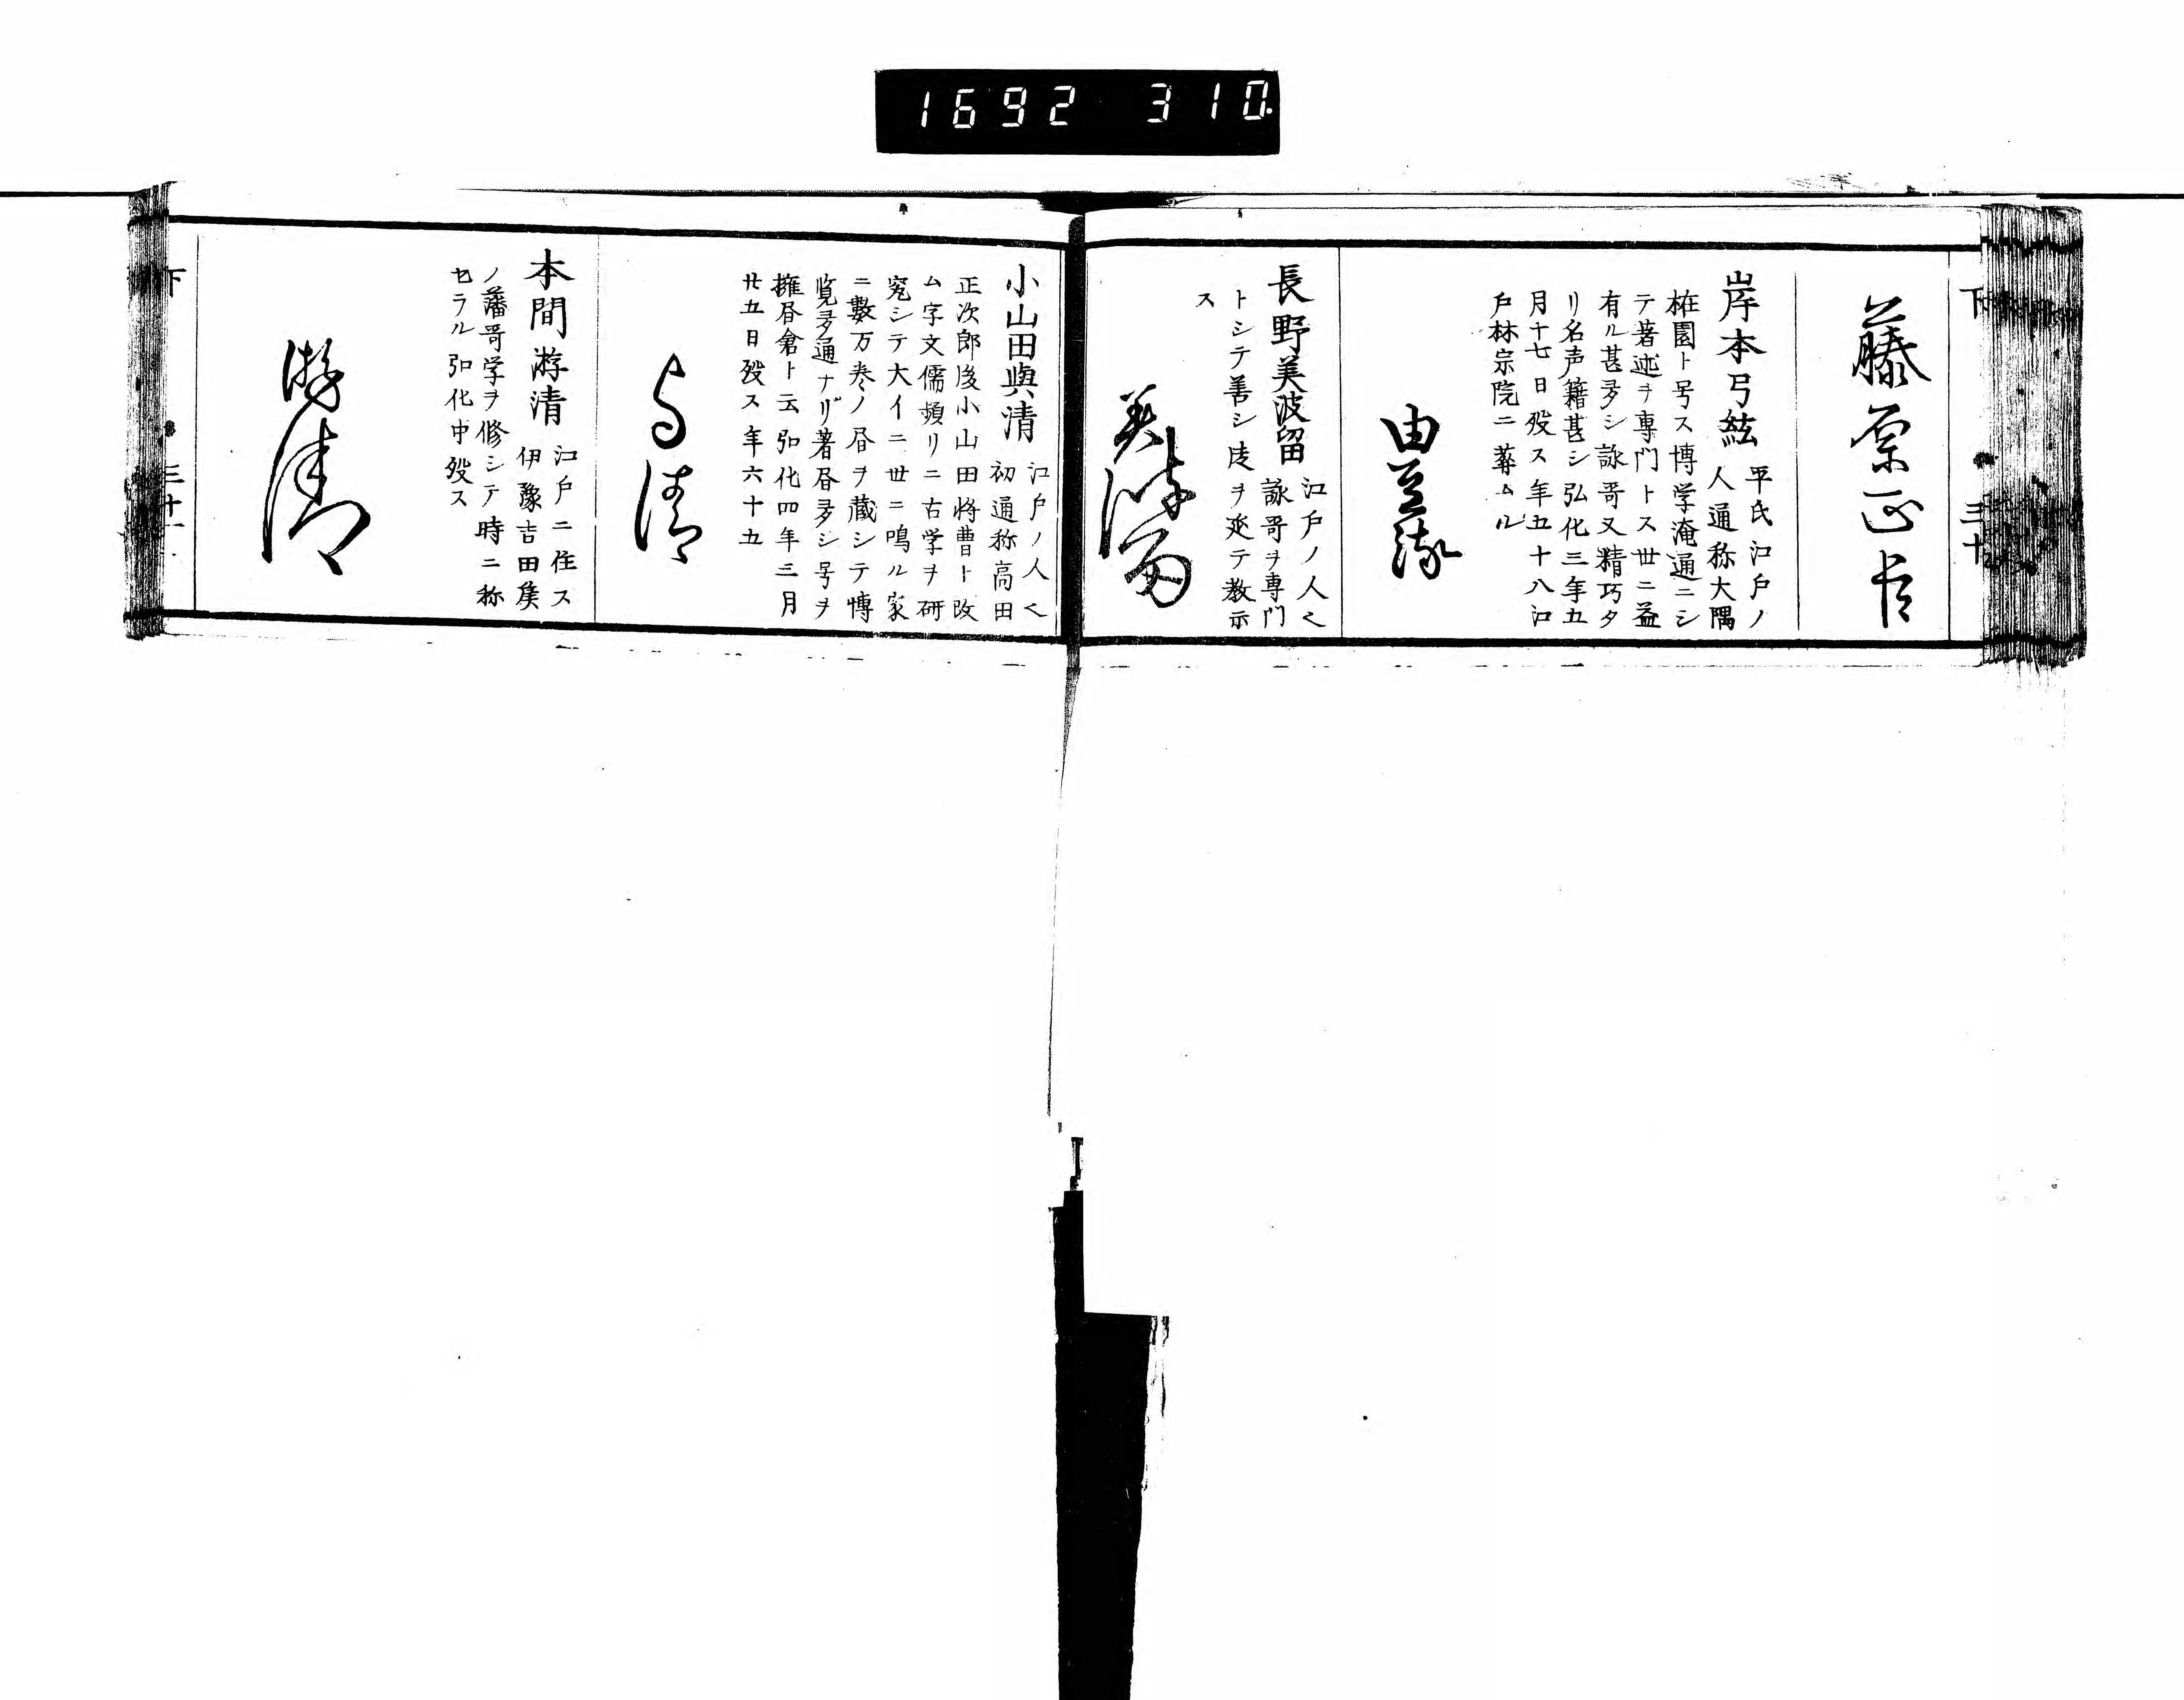 1692 310
下 三十
藤原正臣
岸本弓絃
平氏江戸ノ
人通称大隅
椎園ト号ス博学淹通ニシ
テ著述ヲ専門トス世ニ益
有ル甚多シ詠哥又精巧タ
リ名声籍甚シ弘化三年五
月十七日歿ス年五十八江
戸林宗院ニ葬ムル
由豆流
長野美波留
江戸ノ人也
詠哥ヲ専門
トシテ善シ徒ヲ延テ教示
ス
美波留
小山田與清
江戸ノ人也
初通称高田
正次郎後小山田将曹ト改
ム字文儒頻リニ古学ヲ研
究シテ大イニ世ニ鳴ル家
ニ數万巻ノ昼ヲ蔵シテ博
覧多通ナリ著昼多シ号ヲ
擁昼倉ト云弘化四年三月
廿五日歿ス年六十五
与清
本間游清
江戸ニ住ス
伊豫吉田矦
ノ藩哥学ヲ修シテ時ニ称
セラル弘化中歿ス
游清
下 三十一